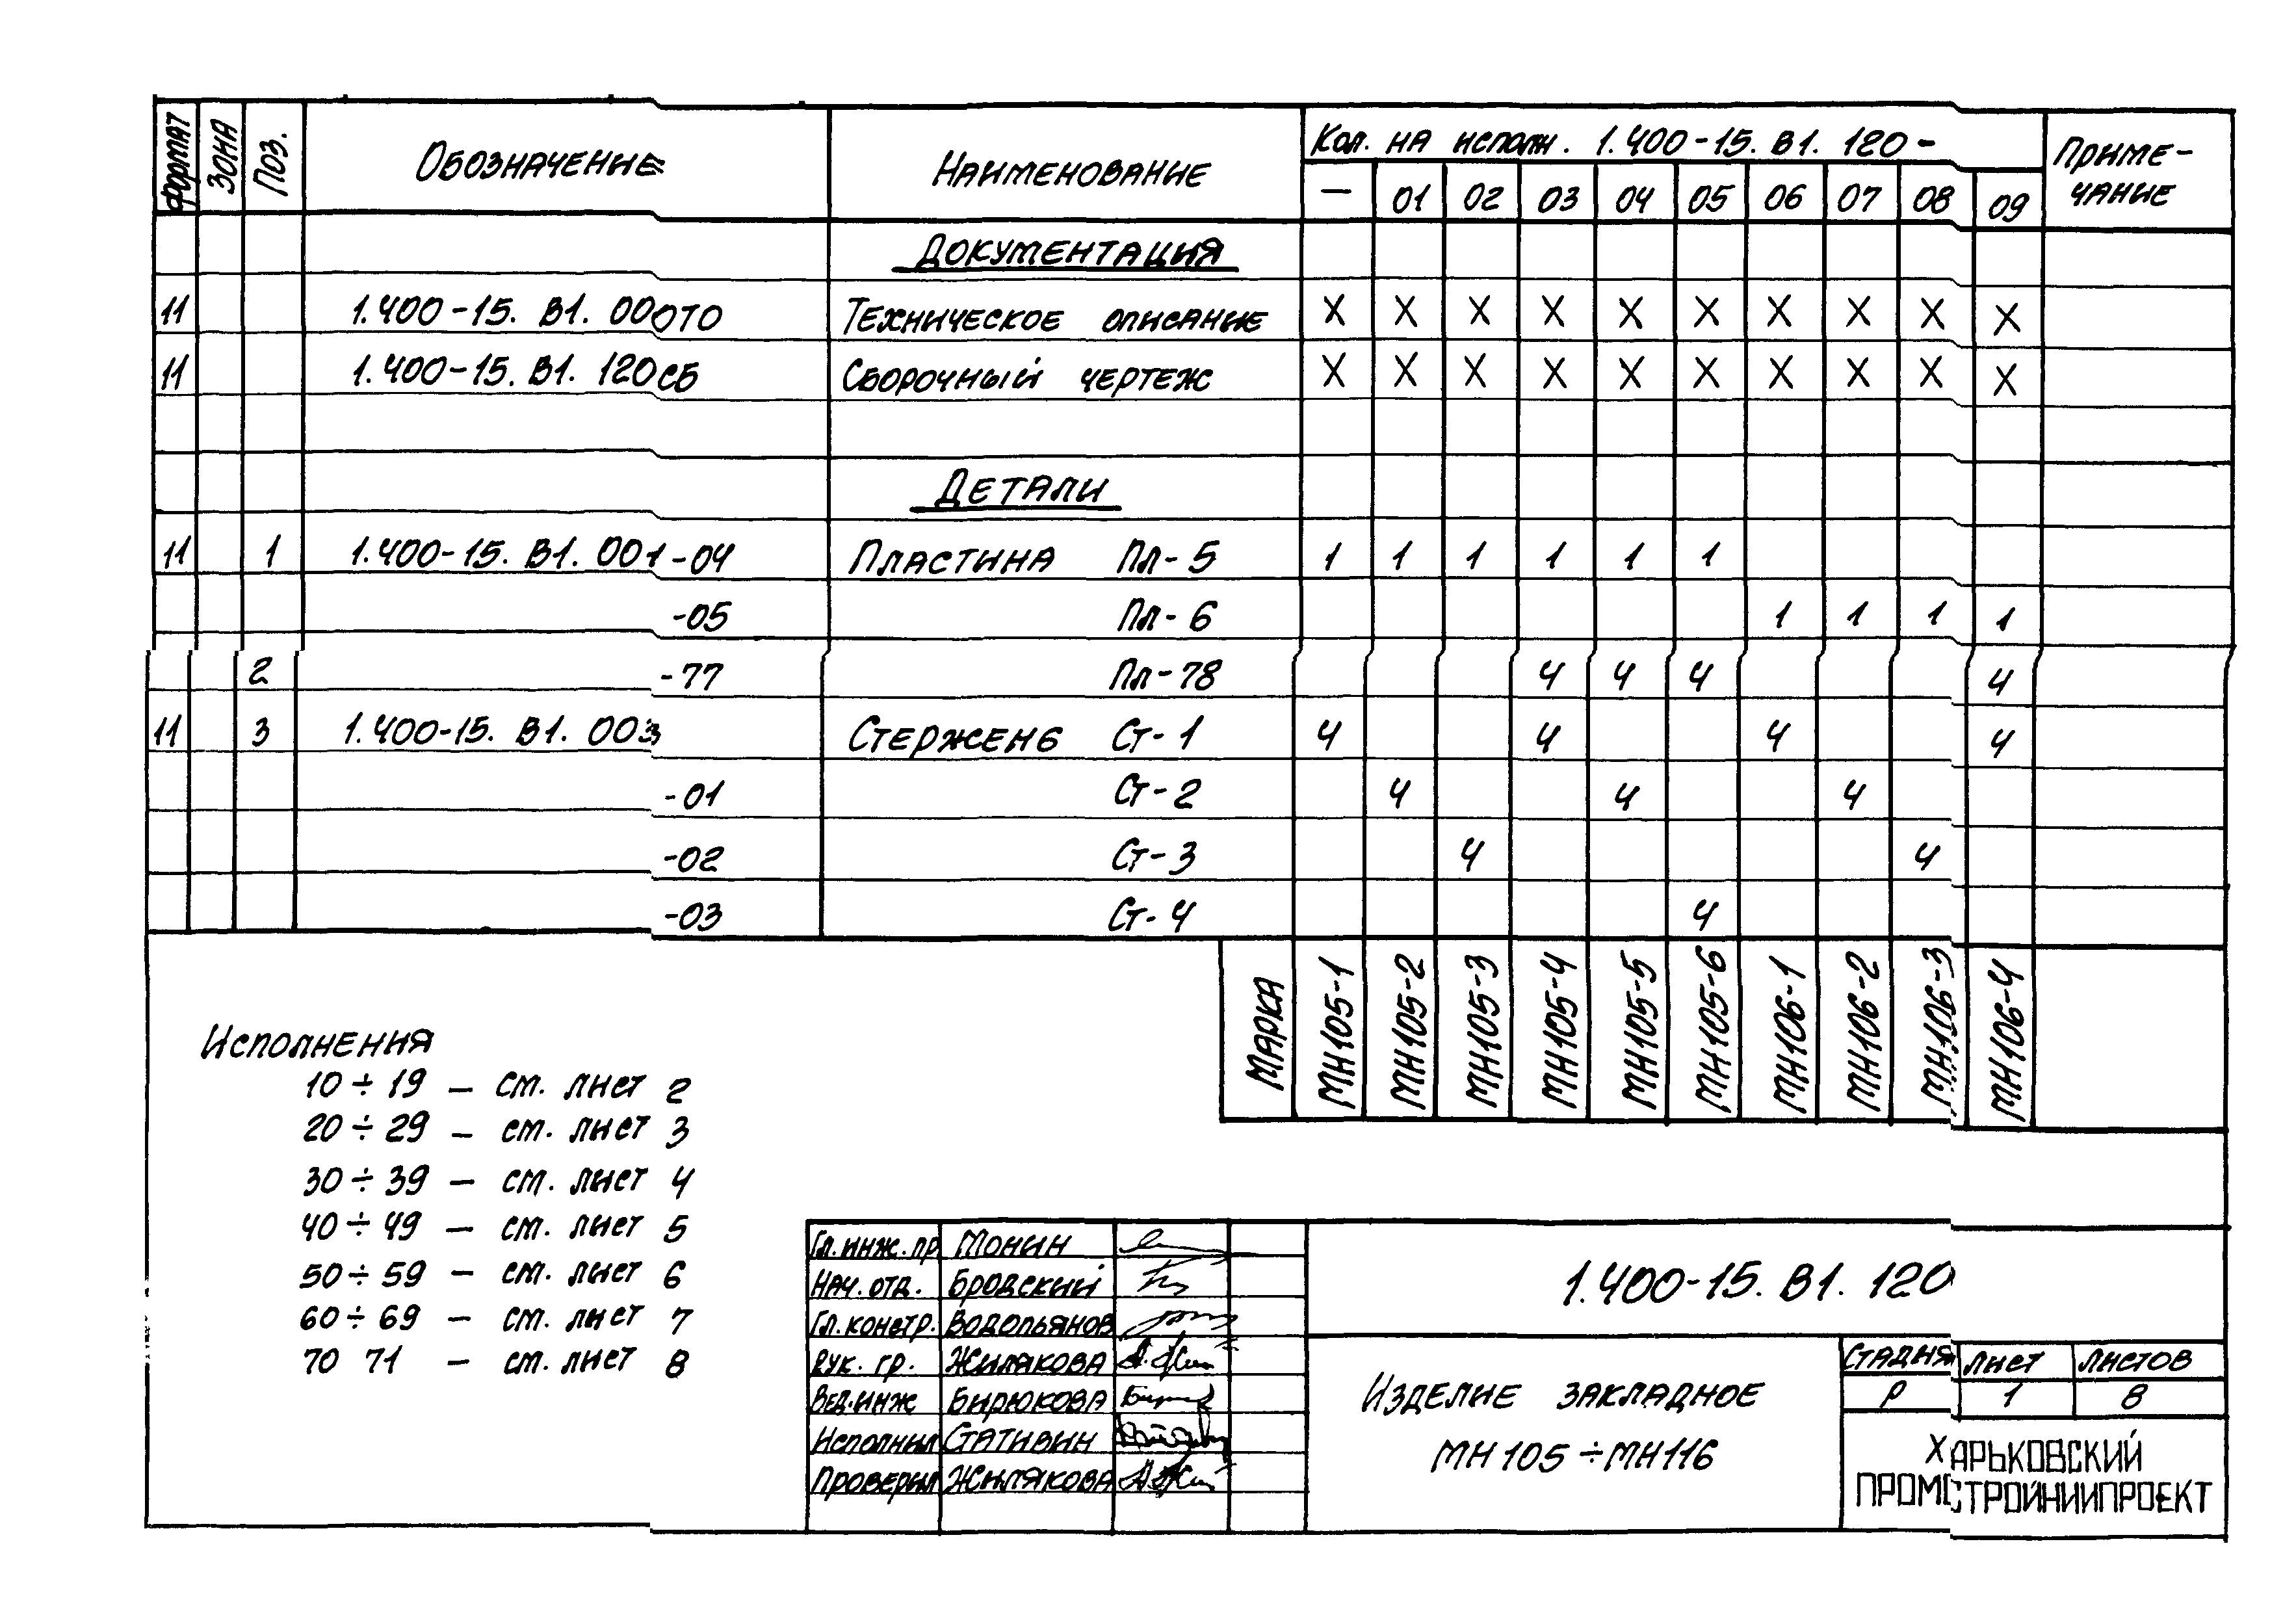 Формат Зона Поз. Обозначение Наименование Кол. на исполн. 1.400-15. В1. 120- Приме-
чание
— 01 02 03 04 05 06 07 08 09
Документация
11 1.400-15. В1. 00 ОТО Техническое описание X X X X X X X X X X
11 1.400-15. В1. 120 СБ Сборочный чертеж X X X X X X X X X X
Детали
11 1 1.400-15. В1. 001 -04 Пластина Пл-5 1 1 1 1 1 1
-05 Пл-6 1 1 1 1
2 -77 Пл-78 4 4 4 4
11 3 1.400-15. В1. 003 Стержень Ст-1 4 4 4 4
-01 Ст-2 4 4 4
-02 Ст-3 4 4
-03 Ст-4 4
Марка МН105-1 МН105-2 МН105-3 МН105-4 МН105-5 МН105-6 МН106-1 МН106-2 МН106-3 МН106-4
Исполнения
10 ÷ 19 — см. лист 2
20 ÷ 29 — см. лист 3
30 ÷ 39 — см. лист 4
40 ÷ 49 — см. лист 5
50 ÷ 59 — см. лист 6
60 ÷ 69 — см. лист 7
70 71 — см. лист 8
Гл. инж. пр Монин
Нач. отд. Бродский
Гл. констр. Водопьянов
Рук. гр. Жилякова
Вед. инж Бирюкова
Исполнил Стативин
Проверил Жилякова
1.400-15. В1. 120
Изделие закладное
МН105 ÷ МН116
Стадия Лист Листов
Р 1 8
Харьковский
Промстройниипроект